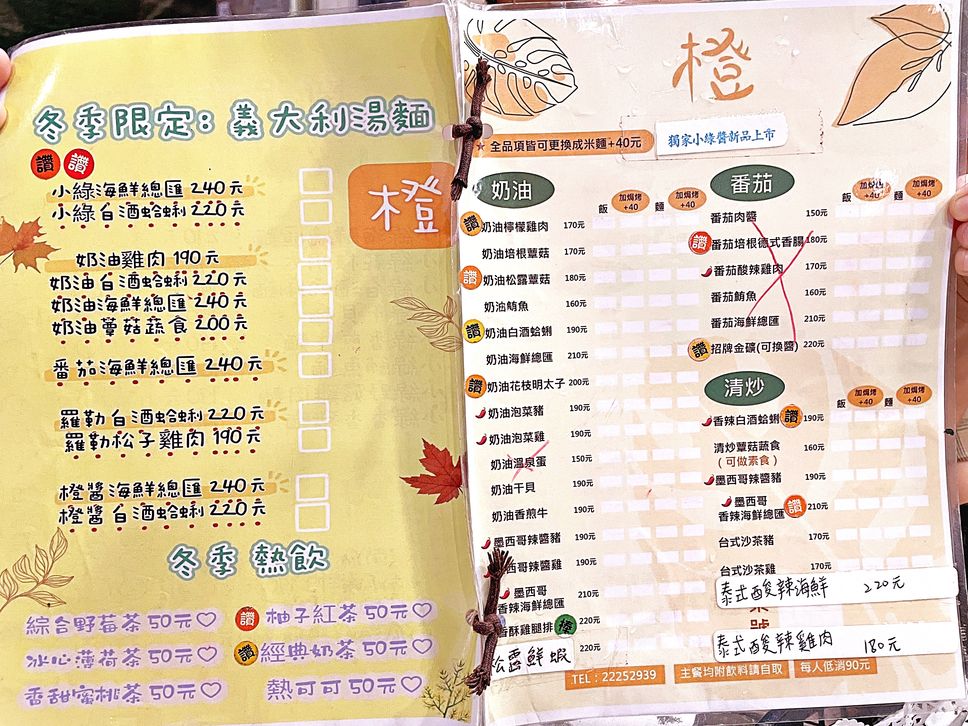 冬季限定: 義大利湯麵
讚 讚
小綠海鮮總匯 240元
小綠白酒蛤蜊 220元
橙
奶油雞肉 190元
奶油白酒蛤蜊 220元
奶油海鮮總匯 240元
奶油蕈菇蔬食 200元
番茄海鮮總匯 240元
羅勒白酒蛤蜊 220元
羅勒松子雞肉 190元
橙醬海鮮總匯 240元
橙醬白酒蛤蜊 220元
冬季 熱飲
綜合野莓茶 50元♡
讚 柚子紅茶 50元♡
冰心薄荷茶 50元♡
讚 經典奶茶 50元♡
香甜蜜桃茶 50元♡
熱可可 50元♡
橙
全品項皆可更換成米麵+40元
獨家小綠醬新品上市
奶油
飯 加焗烤+40 麵 加焗烤+40
讚 奶油檸檬雞肉 170元
奶油培根蕈菇 170元
讚 奶油松露蕈菇 180元
奶油鮪魚 160元
讚 奶油白酒蛤蜊 190元
奶油海鮮總匯 210元
讚 奶油花枝明太子 200元
奶油泡菜豬 190元
奶油泡菜雞 190元
奶油溫泉蛋 150元
奶油干貝 190元
奶油香煎牛 190元
墨西哥辣醬豬 190元
哥辣醬雞 190元
墨西哥
香辣海鮮總匯 210元
香酥雞腿排 棒 220元
松露鮮蝦 220元
番茄
飯 加焗烤+40 麵 加焗烤+40
番茄肉醬 150元
讚 番茄培根德式香腸 180元
番茄酸辣雞肉 170元
番茄鮪魚 160元
番茄海鮮總匯 210元
讚 招牌金礦(可換醬) 220元
清炒
飯 加焗烤+40 麵 加焗烤+40
香辣白酒蛤蜊 讚 190元
清炒蕈菇蔬食 160元
(可做素食)
墨西哥辣醬豬 190元
墨西哥
香辣海鮮總匯 讚 210元
台式沙茶豬 170元
台式沙茶雞 170元
泰式酸辣海鮮 220元
泰式酸辣雞肉 180元
TEL：22252939
主餐均附飲料請自取
每人低消90元